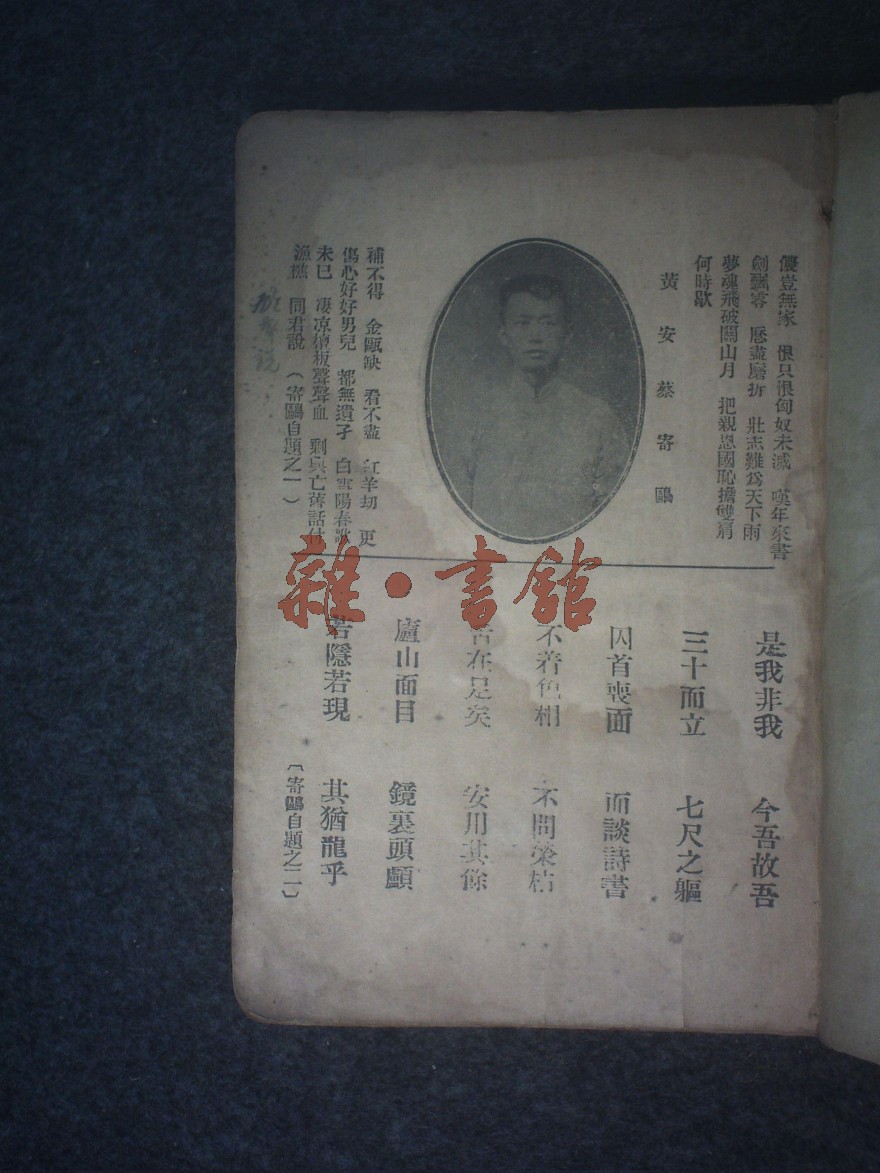 儂豈無家　恨只恨匈奴未滅　嘆年來書
劍飄零　歷盡磨折　壯志難爲天下雨
夢魂飛破關山月　把親恩國恥擔雙肩
何時歇
黃安蔡寄鷗
補不得　金甌缺　看不盡　紅羊劫　更
傷心好好男兒　都無遺孑　白雪陽春歌
未已　凄凉檀板聲聲血　剩興亡舊話付
漁樵　同君說　（寄鷗自題之一）
是我非我　今吾故吾
三十而立　七尺之軀
囚首喪面　而談詩書
不着色相　不問榮枯
舌在足矣　安用其餘
廬山面目　鏡裏頭顱
若隱若現　其猶龍乎
（寄鷗自題之二）
雜·書館